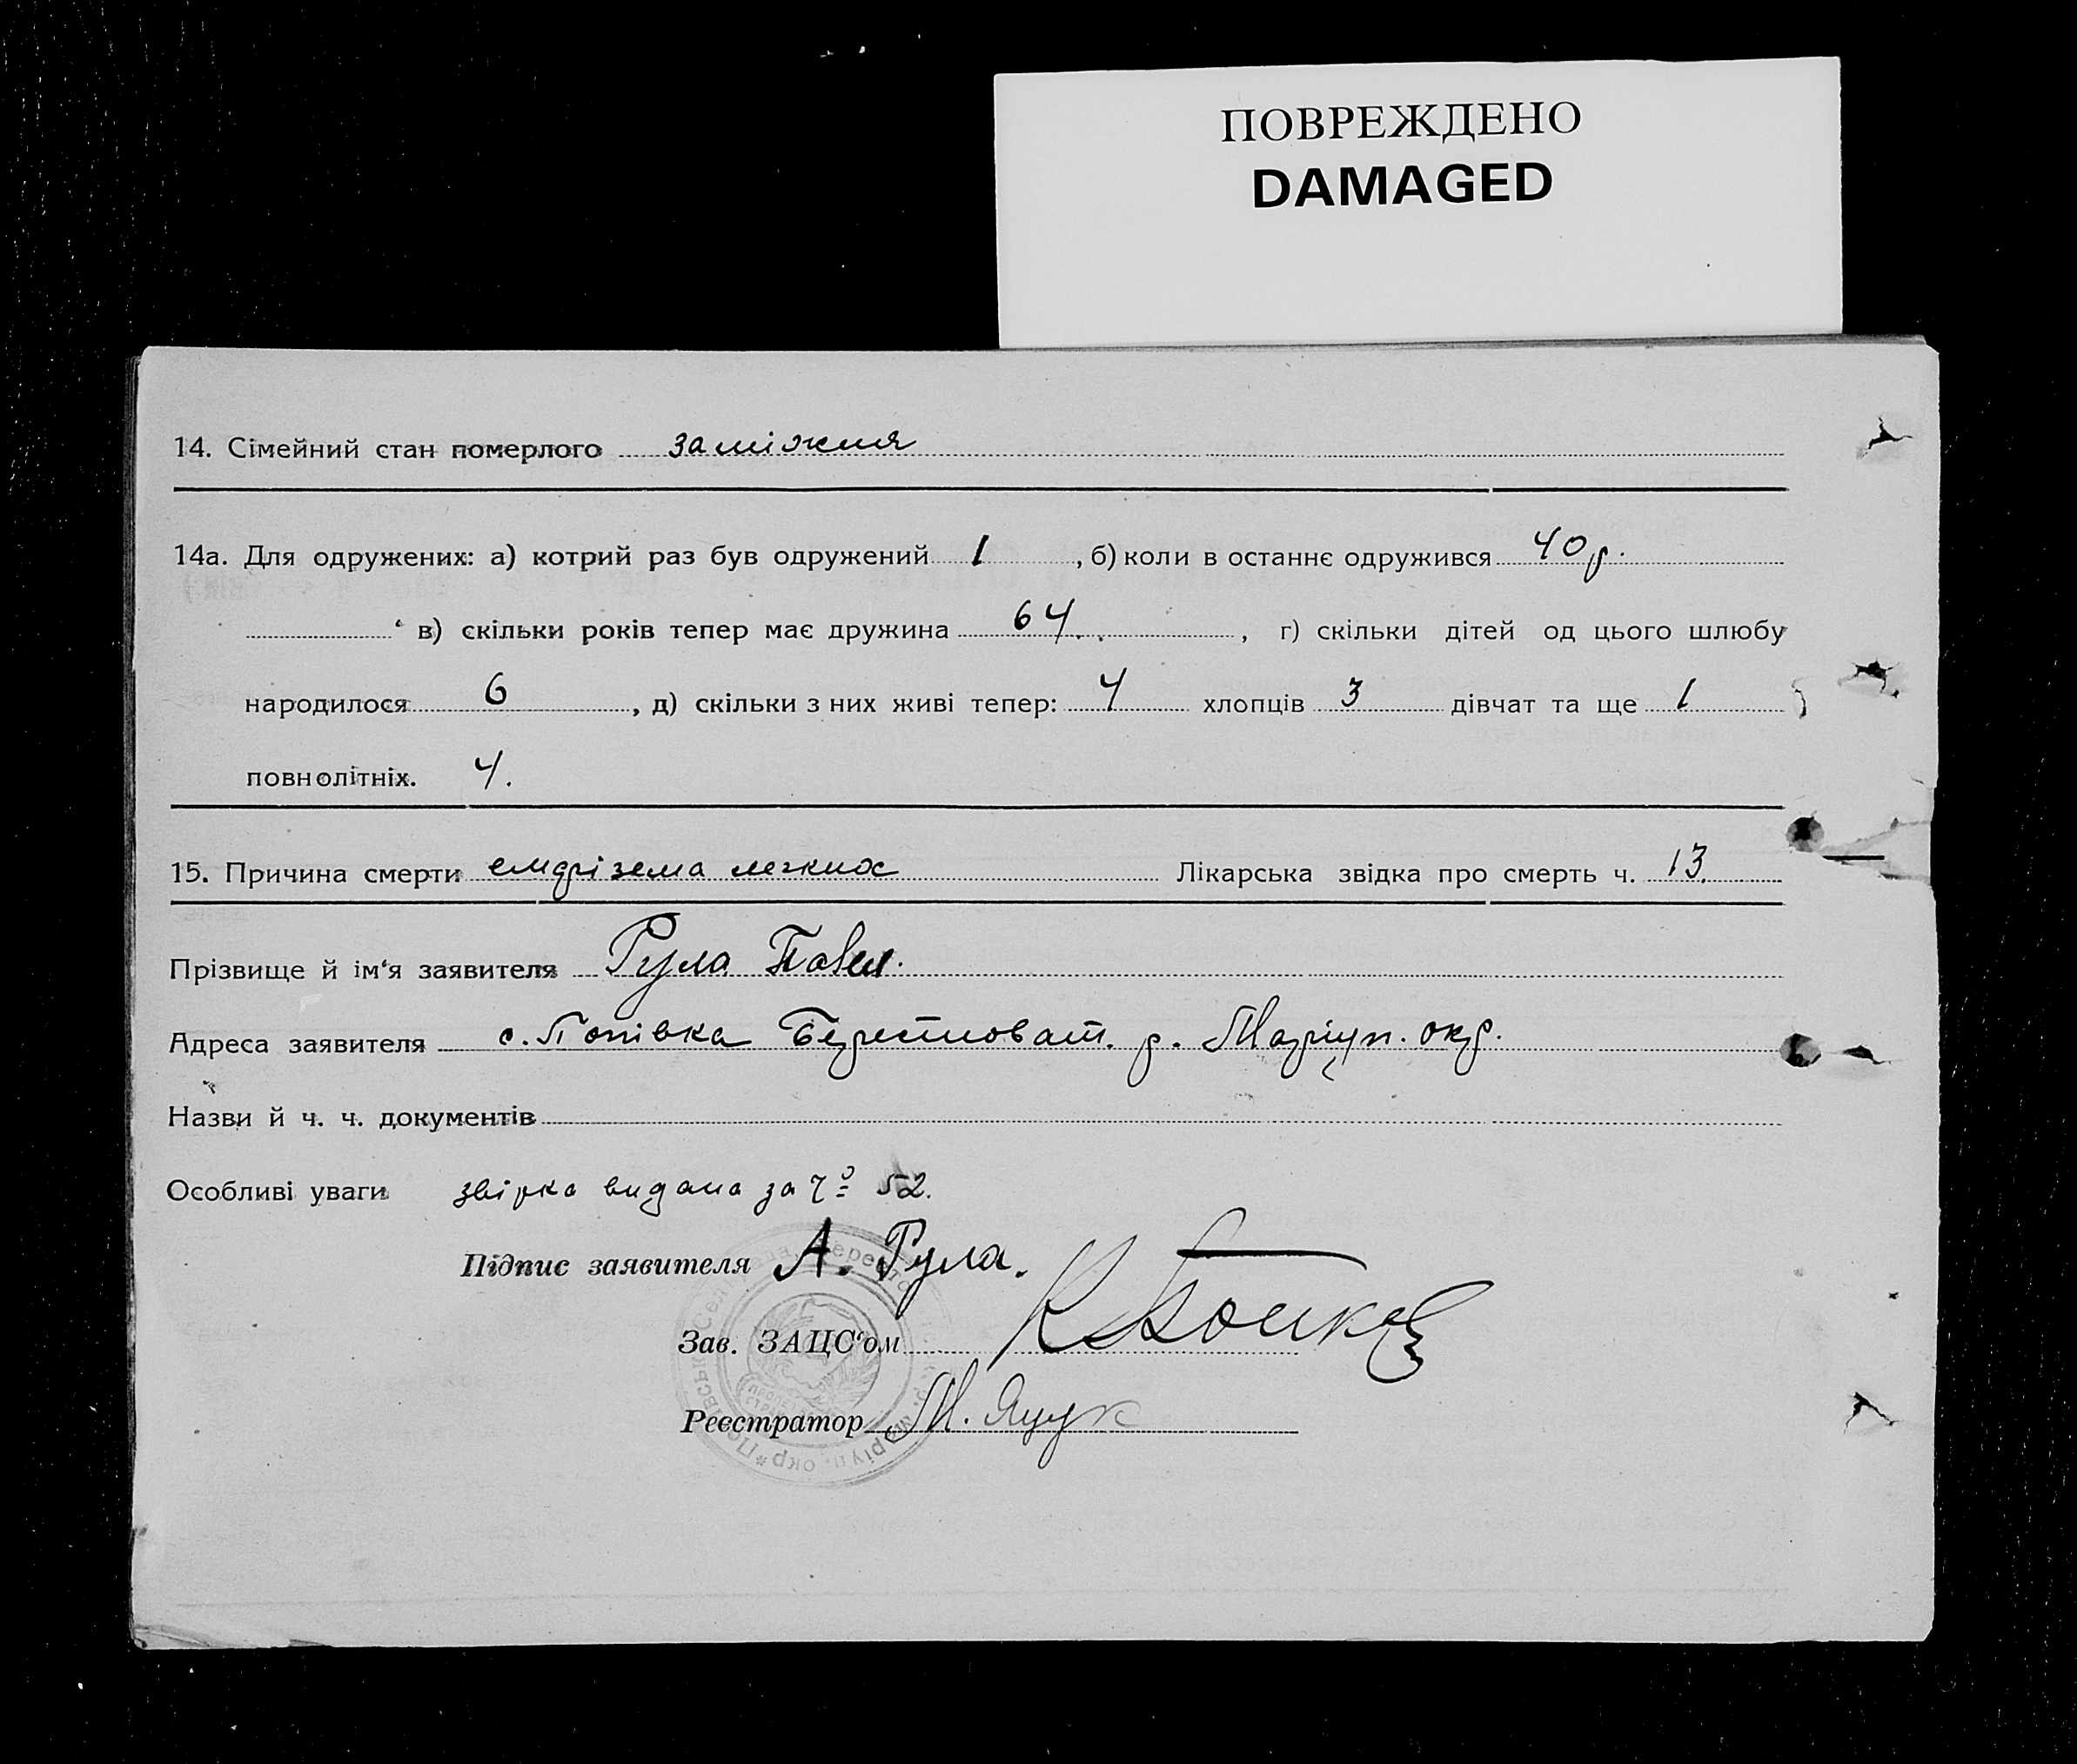 ПОВРЕЖДЕНО
DAMAGED
14. Сімейний стан померлого заміжня
14а. Для одружених: а) котрий раз був одружений 1, б) коли в останнє одружився 40 р.
в) скільки років тепер має дружина 64., г) скільки дітей од цього шлюбу
народилося 6, д) скільки з них живі тепер: 4 хлопців 3 дівчат та ще 1
повнолітніх. 4.
15. Причина смерти емфізема легких Лікарська звідка про смерть ч. 13.
Прізвище й ім'я заявителя Рула Павел.
Адреса заявителя с. Попівка Берестоват. р. Маріуп. окр.
Назви й ч. ч. документів
Особливі уваги звірка видана за 52.
Підпис заявителя А. Рула.
Зав. ЗАЦС'ом
Реєстратор М. Яцук